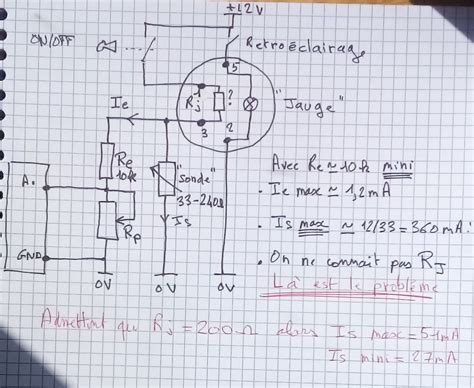 +12V
ON/OFF
Retroéclairage
5
1
Rj
?
"Jauge"
Ie
3
2
Re
10k
"Sonde"
33-240Ω
A.
Is
Rp
GND
0V
0V
0V
Avec Re ≃ 10k mini
. Ie max ≃ 1,2mA
. Is max ≃ 12/33 = 360mA!
. On ne connait pas RJ
Là est le problème
Admettont que Rj = 200Ω alors Is max = 51mA
Is mini = 27mA